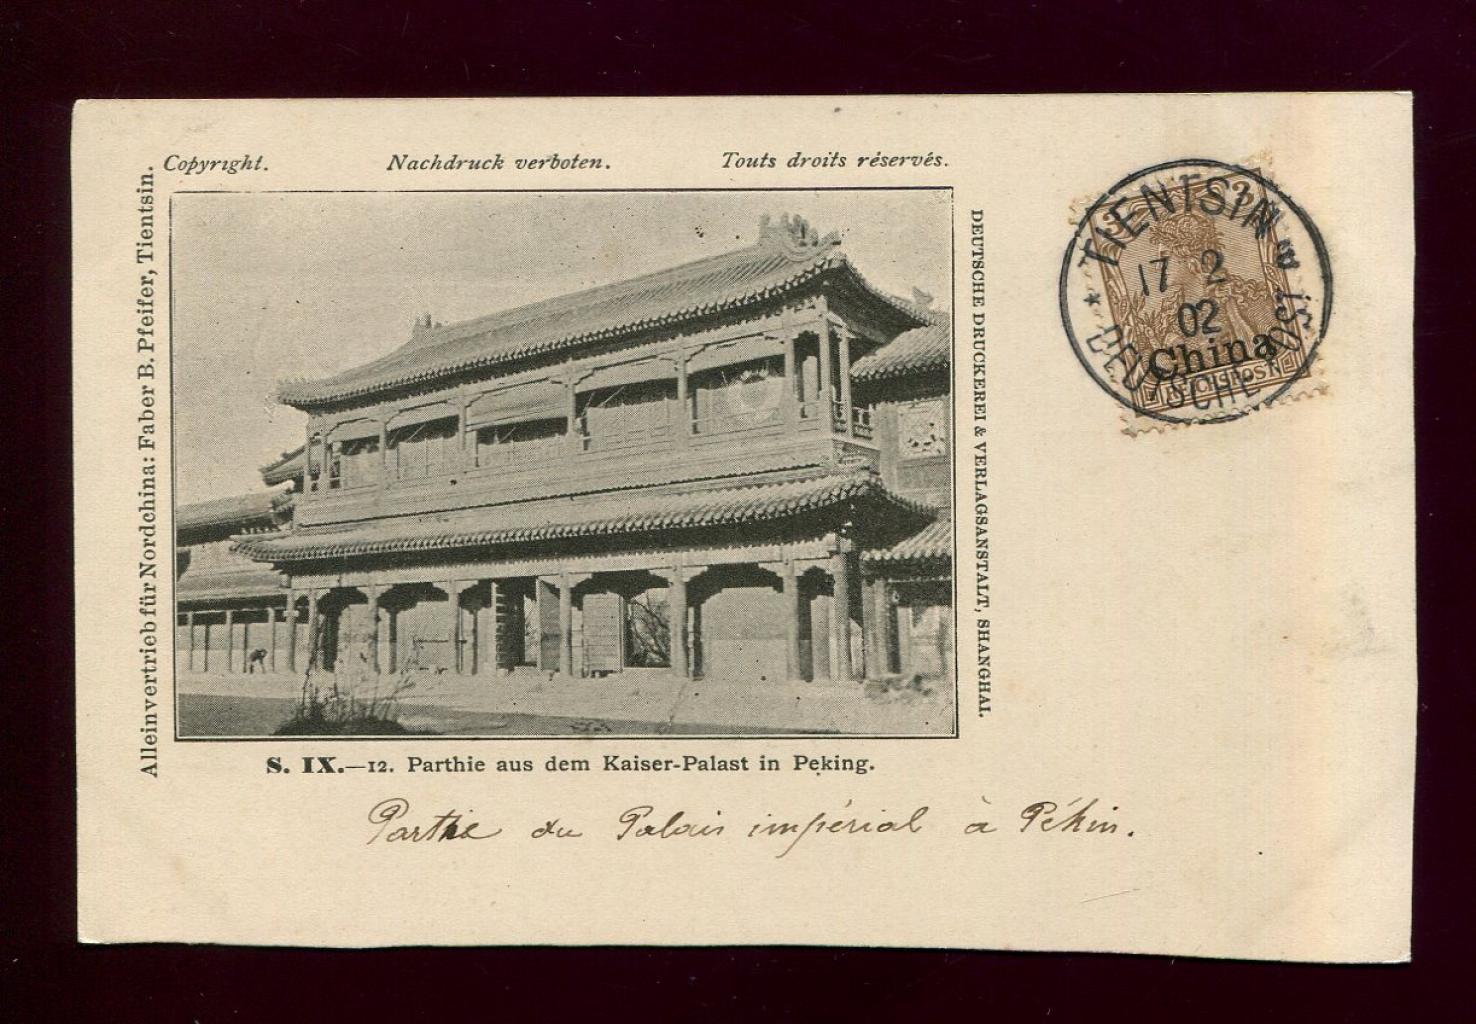 Copyright. Nachdruck verboten. Touts droits réservés.
Alleinvertrieb für Nordchina: Faber B. Pfeifer, Tientsin.
DEUTSCHE DRUCKEREI & VERLAGSANSTALT, SHANGHAI.
S. IX.—12. Parthie aus dem Kaiser-Palast in Peking.
Partie du Palais impérial à Pékin.
3 3
TIENTSIN
17 2
02
China
REICHSPOST
DEUTSCHE POST